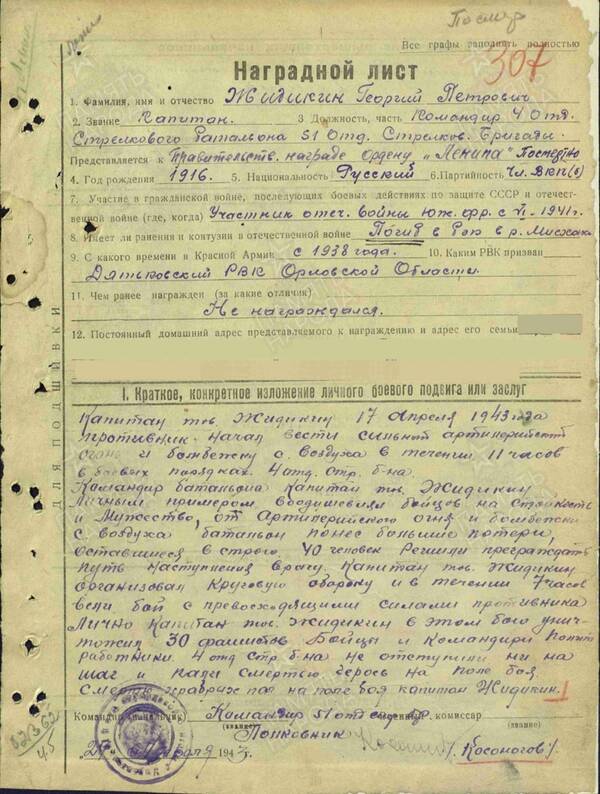 Посмер
Все графы заполнять полностью
307
Наградной лист
1. Фамилия, имя и отчество Жидикин Георгий Петрович
2. Звание Капитан. 3 Должность, часть Командир 4 Отд.
Стрелкового Батальона 51 Отд. Стрелков. Бригады.
Представляется к Правительств. награде ордену „Ленина" Посмертно
4. Год рождения 1916. 5. Национальность Русский 6.Партийность Чл. ВКП(б)
7. Участие в гражданской войне, последующих боевых действиях по защите СССР и отечест-
венной войне (где, когда) Участник отеч. войны Юж. фр. с VI-1941г.
8. Имеет ли ранения и контузии в отечественной войне Погиб в р-не Мисхако
9. С какого времени в Красной Армии с 1938 года. 10. Каким РВК призван
Дятьковский РВК Орловской Области.
11. Чем ранее награжден (за какие отличия)
Не награждался.
12. Постоянный домашний адрес представляемого к награждению и адрес его семьи
I. Краткое, конкретное изложение личного боевого подвига или заслуг
ДЛЯ ПОДШИВКИ
Капитан тов. Жидикин 17 Апреля 1943 года
противник начал вести сильный артилерийский
огонь и бомбежку с воздуха в течении 11 часов
в боевых порядках 4 отд. стр. б-на.
Командир батальона Капитан тов. Жидикин
Личным примером воодушевлял бойцов на стойкость
и Мужество, от Артилерийского огня и бомбежки
с воздуха батальон понес большие потери,
Оставшиеся в строю 40 человек Решили преграждать
путь наступления врагу. Капитан тов. Жидикин
организовал Круговую оборону и в течении 7 часов
вели бой с превосходящими силами противника
Лично Капитан тов. Жидикин в этом бою унич-
тожил 30 фашистов. Бойцы и Командиры Полит
работники 4 отд Стр. б-на не отступили ни на
шаг и пали смертью героя на поле боя.
Смертью храбрых пал на поле боя капитан Жидикин.
Командир (начальник) Командир 51 отд Военный комиссар
(звание) (звание)
Полковник /Косоногов/.
1943